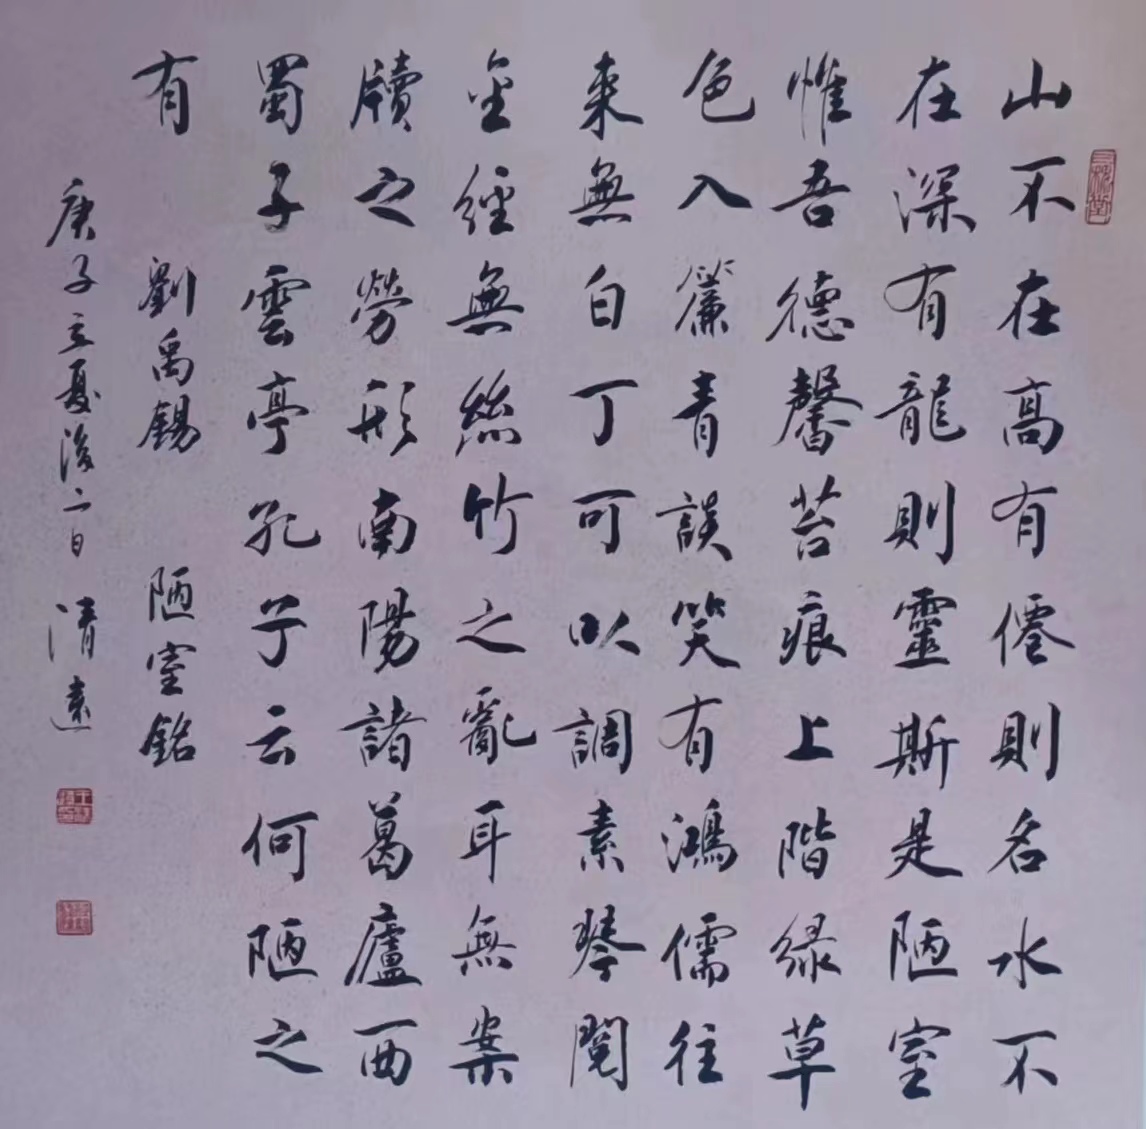 山不在高有僊則名水不
在深有龍則靈斯是陋室
惟吾德馨苔痕上階緑草
色入簾青談笑有鴻儒往
来無白丁可以調素琴閱
金經無絲竹之亂耳無案
牘之勞形南陽諸葛廬西
蜀子雲亭孔子云何陋之
有 劉禹錫 陋室銘
庚子立夏後二日 清遠